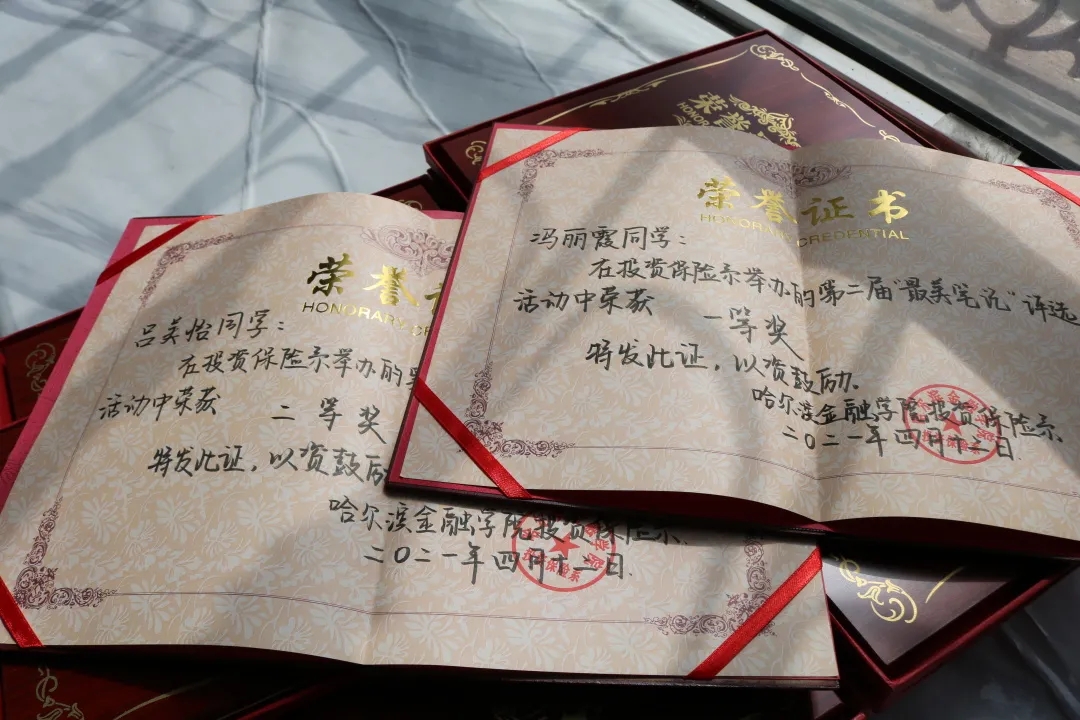 荣誉
HONOR
荣誉证书
HONORARY CREDENTIAL
冯丽霞同学：
在投资保险系举办的第二届“最美笔记”评选
活动中荣获 一等奖
特发此证，以资鼓励.
哈尔滨金融学院投资保险系.
二〇二一年四月十二日.
荣誉
HONORARY
吕美怡同学：
在投资保险系举办的
活动中荣获 二等奖
特发此证，以资鼓励
哈尔滨金融学院投资保险系.
二〇二一年四月十二日.